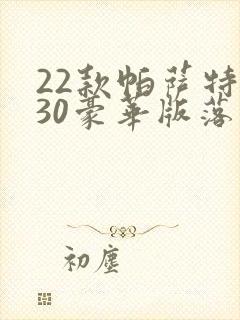 22款帕萨特
30豪华版落
初尘